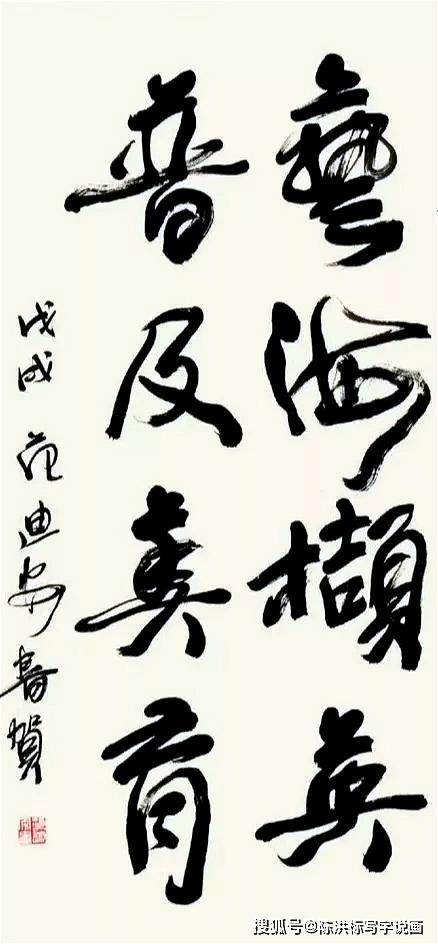 藝海擷英
普及美育
戊戌 范迪安書賀
搜狐号@陈洪标写字说画